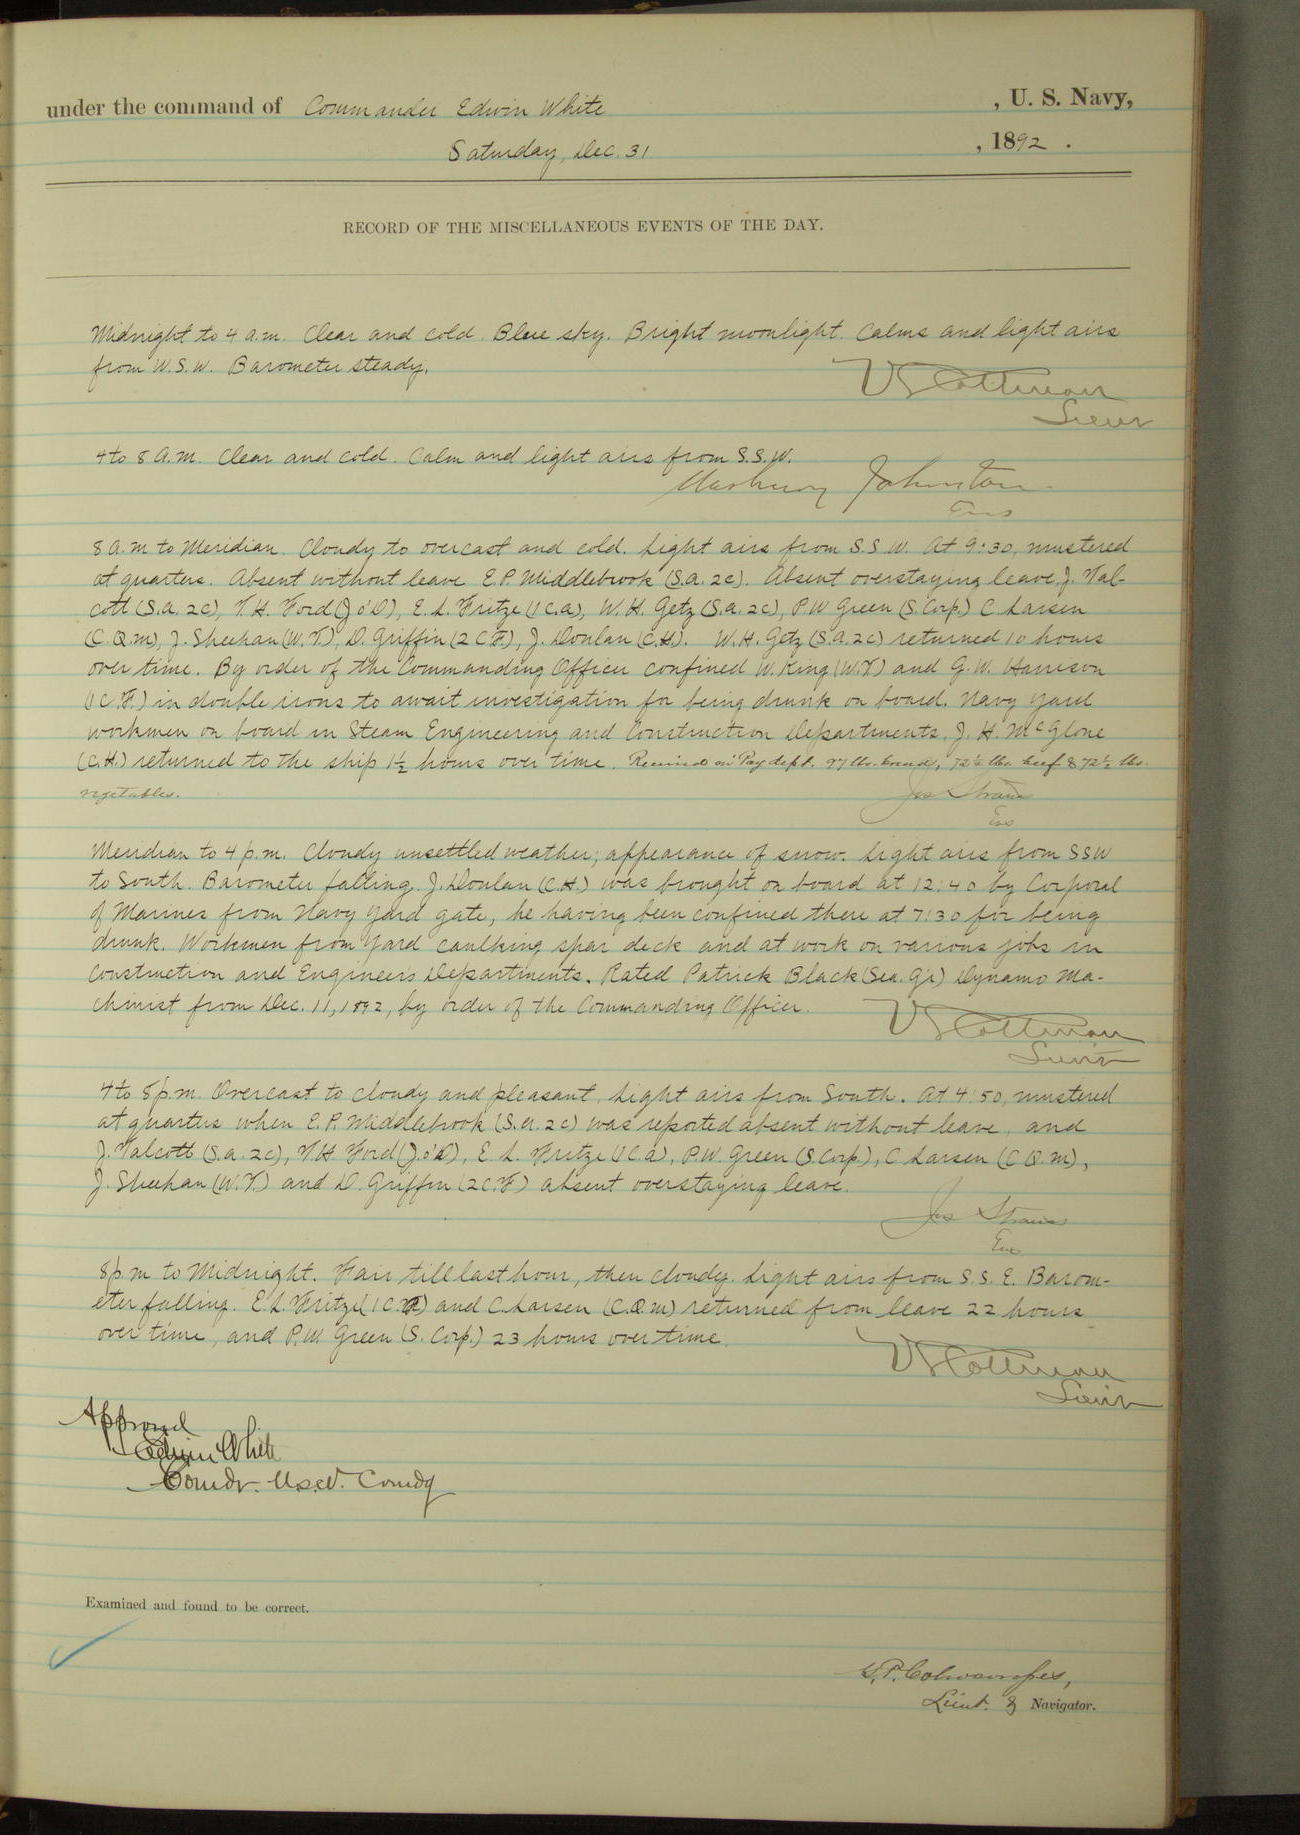 under the command of Commander Edwin White , U. S. Navy,
Saturday, Dec. 31 , 1892 .
RECORD OF THE MISCELLANEOUS EVENTS OF THE DAY.
Midnight to 4 a.m. Clear and cold. Blue sky. Bright moonlight. Calms and light airs
from W.S.W. Barometer steady.
V S Cottman
Lieut
4 to 8 A.M. Clear and cold. Calm and light airs from S.S.W.
Marbury Johnston
Ens
8 A.M to Meridian. Cloudy to overcast and cold. Light airs from S.S.W. At 9:30, mustered
at quarters. Absent without leave E.P. Middlebrook (S.a. 2c). Absent overstaying leave J. Tal-
cott (S.a. 2c), T.H. Ford (J o'D), E.L. Fritze (1 C.a), W.H. Getz (S.a. 2c), P.W Green (S. Corp.) C. Larsen
(C.Q.M), J. Sheehan (W.T.), D. Griffin (2 C.F.), J. Donlan (C.H.). W.H. Getz (S.A. 2c) returned 10 hours
over time. By order of the Commanding Officer confined W. King (W.T) and G.W. Harrison
(1 C.F.) in double irons to await investigation for being drunk on board. Navy Yard
workmen on board in Steam Engineering and Construction Departments. J.H. McGlone
(C.H.) returned to the ship 1½ hours over time. Received in Pay dept. 97 lbs. bread, 72½ lbs. beef & 72½ lbs.
vegetables.
Jos Strauss
Ens
Meridian to 4 p.m. Cloudy unsettled weather; appearance of snow. Light airs from SSW
to South. Barometer falling. J. Donlan (C.H.) was brought on board at 12:40 by Corporal
of Marines from Navy Yard gate, he having been confined there at 7:30 for being
drunk. Workmen from Yard caulking spar deck and at work on various jobs in
Construction and Engineers Departments. Rated Patrick Black (Sea. Gr) Dynamo Ma-
chinist from Dec. 11, 1892, by order of the Commanding Officer.
V S Cottman
Lieut
4 to 8 p.m. Overcast to cloudy and pleasant. Light airs from South. At 4:50, mustered
at quarters when E.P. Middlebrook (S.a. 2c) was reported absent without leave, and
J. Talcott (S.a. 2c), T H Ford (J.o'D), E. L. Fritze (1 C.a), P.W. Green (S. Corp.), C Larsen (C Q.M),
J. Sheehan (W.T.) and D. Griffin (2 C.F) absent overstaying leave.
Jos Strauss
Ens
8 p.m to Midnight. Fair till last hour, then cloudy. Light airs from S.S.E. Barom-
eter falling. E.L. Fritze (1 C.a) and C. Larsen (C.Q.M) returned from leave 22 hours
over time, and P.W. Green (S. Corp.) 23 hours over time.
V S Cottman
Lieut
Approved
Edwin White
Comdr. U.S.N. Comdg
Examined and found to be correct.
Lieut. & Navigator.